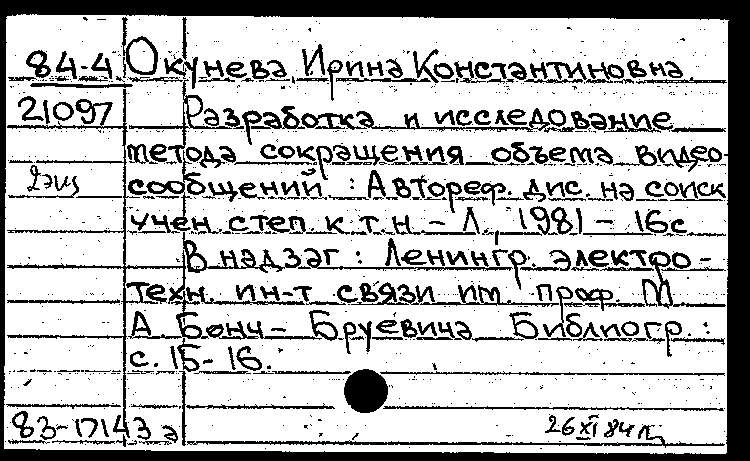 84-4 Окунева Ирина Константиновна
21097 Разработка и исследование
метода сокращения объема видео-
2 экз сообщений : Автореф. дис. на соиск
учен. степ к т н - Л, 1981 - 16 с
В надзаг : Ленингр. электро-
техн. ин-т связи им. проф. М
А Бонч - Бруевича Библиогр. :
с. 15-16.
83-17143 а 26 XI 84